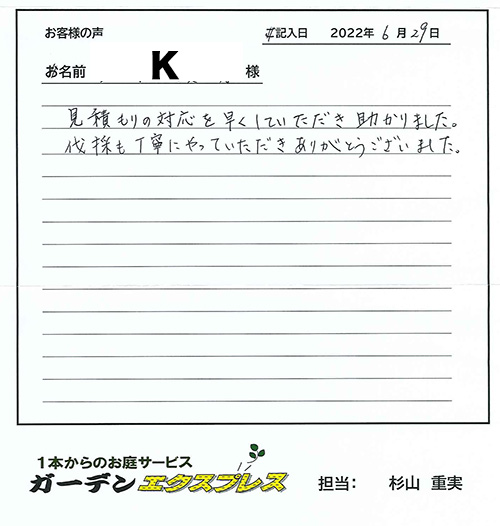 お客様の声
ご記入日 2022年 6月29日
お名前 K 様
見積もりの対応を早くしていただき助かりました。
伐採も丁寧にやっていただきありがとうございました。
1本からのお庭サービス
ガーデンエクスプレス 担当: 杉山 重実